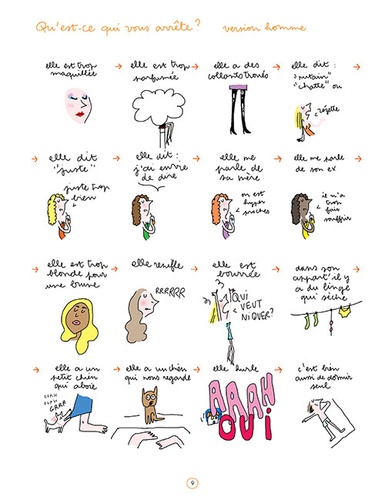 Qu'est-ce qui vous arrête? version homme
elle est trop
maquillée
elle est trop
parfumée
elle a des
collants troués
elle dit :
"putain"
"chatte" ou
zézette
elle dit
"juste"
juste trop
bien
elle dit :
j'ai envie
de dire
elle me
parle de
sa mère
on est
hyper
proches
elle me parle
de son ex
il m'a
trop
fait
souffrir
elle est trop
blonde pour
une brune
elle renifle
RRRRRR
elle est
bourrée
QUI
VEUT
NIQUER?
dans son
appart' il y
a du linge
qui sèche
elle a un
petit chien
qui aboie
GRRR
elle a un chien
qui nous regarde
elle hurle
AAAH
OUI
c'est bien
aussi de dormir
seul
9